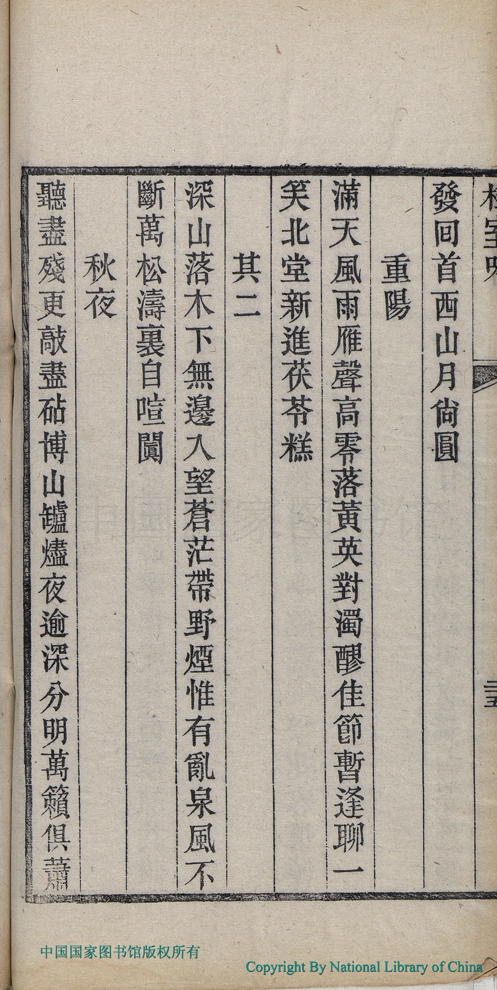 發回首西山月尙圓
重陽
滿天風雨雁聲高零落黃英對濁醪佳節暫逢聊一
笑北堂新進茯苓糕
其二
深山落木下無邊入望蒼茫帶野煙惟有亂泉風不
斷萬松濤裏自喧闐
秋夜
聽盡殘更敲盡砧博山鑪燼夜逾深分明萬籟俱蕭
中国国家图书馆版权所有
Copyright By National Library of China